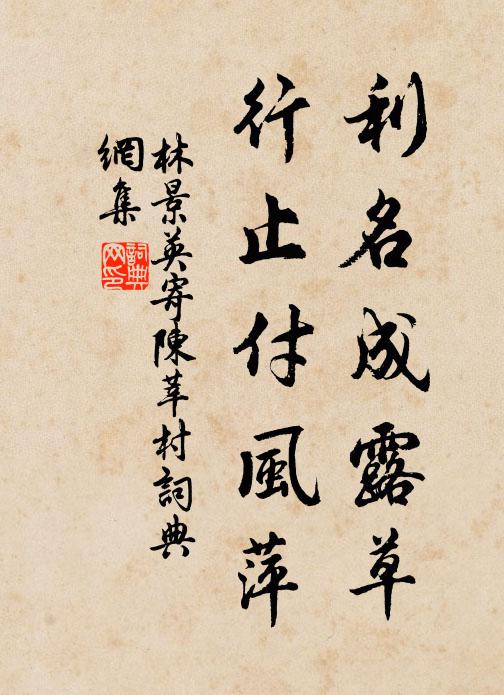 利名成露草
行止付風萍
林景英寄陳莘村詞典
網集
詞典
网印